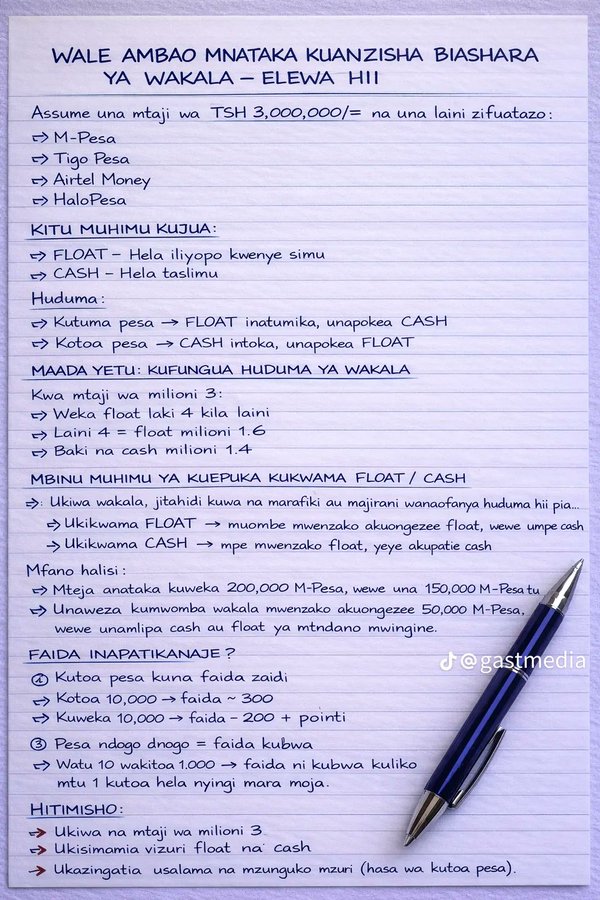 WALE AMBAO MNATAKA KUANZISHA BIASHARA
YA WAKALA – ELEWA HII
Assume una mtaji wa TSH 3,000,000/= na una laini zifuatazo:
⇨ M-Pesa
⇨ Tigo Pesa
⇨ Airtel Money
⇨ HaloPesa
KITU MUHIMU KUJUA:
⇨ FLOAT – Hela iliyopo kwenye simu
⇨ CASH – Hela taslimu
Huduma:
⇨ Kutuma pesa → FLOAT inatumika, unapokea CASH
⇨ Kotoa pesa → CASH intoka, unapokea FLOAT
MAADA YETU: KUFUNGUA HUDUMA YA WAKALA
Kwa mtaji wa milioni 3:
⇨ Weka float laki 4 kila laini
⇨ Laini 4 = float milioni 1.6
⇨ Baki na cash milioni 1.4
MBINU MUHIMU YA KUEPUKA KUKWAMA FLOAT / CASH
⇨: Ukiwa wakala, jitahidi kuwa na marafiki au majirani wanaofanya huduma hii pia...
⇨ Ukikwama FLOAT → muombe mwenzako akuongezee float, wewe umpe cash
⇨ Ukikwama CASH → mpe mwenzako float, yeye akupatie cash
Mfano halisi:
⇨ Mteja anataka kuweka 200,000 M-Pesa, wewe una 150,000 M-Pesa tu
⇨ Unaweza kumwomba wakala mwenzako akuongezee 50,000 M-Pesa,
wewe unamlipa cash au float ya mtndano mwingine.
FAIDA INAPATIKANAJE?
① Kutoa pesa kuna faida zaidi
⇨ Kotoa 10,000 → faida ~ 300
⇨ Kuweka 10,000 → faida – 200 + pointi
③ Pesa ndogo dnogo = faida kubwa
⇨ Watu 10 wakitoa 1.000 → faida ni kubwa kuliko
mtu 1 kutoa hela nyingi mara moja.
HITIMISHO:
⇨ Ukiwa na mtaji wa milioni 3
⇨ Ukisimamia vizuri float na cash
⇨ Ukazingatia usalama na mzunguko mzuri (hasa wa kutoa pesa).
@gastmedia